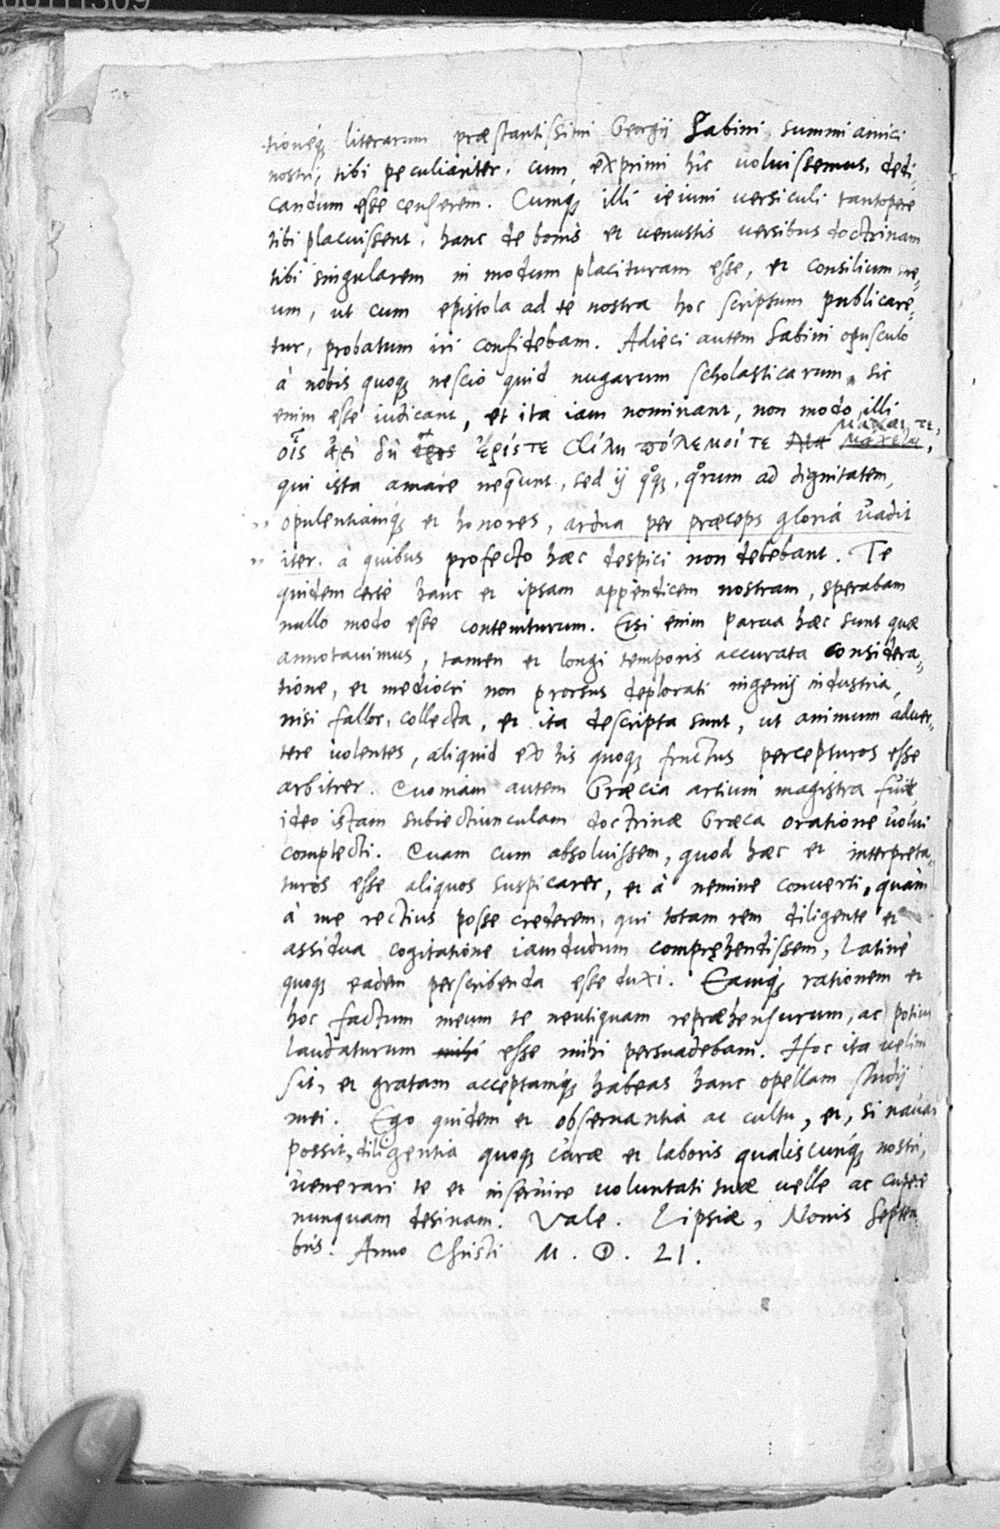 tioneq́; literarum præstantissimi Georgij Sabini, summi amici
nostri, tibi peculiariter, cum exprimi hîc voluissemus, dedi,,
candum esse censerem. Cumq; illi ieiuni versiculi tantopere
tibi placuissent, hanc de bonis et venustis versibus doctrinam
tibi singularem in modum placituram esse, et consilium me,,
um, ut cum epistola ad te nostra hoc scriptum publicare,,
tur, probatum iri confidebam. Adieci autem Sabini opusculo
à nobis quoq; nescio quid nugarum scholasticarum, sic
enim esse iudicant, et ita iam nominant, non modo illi
μάχαι τε,
οἷς ἀεὶ δὴ ἔρίς τε φίλη πόλεμοί τε
qui ista amare nequeunt, sed ij quoq;, quorum ad dignitatem,
opulentiamq; et honores, ardua per præceps gloria vadit
iter. à quibus profecto hæc despici non debebant. Te
quidem certe hanc et ipsam appendicem nostram, sperabam
nullo modo esse contemturum. Etsi enim parua hæc sunt quæ
annotauimus, tamen et longi temporis accurata considera,,
tione, et mediocri non prorsus deplorati ingenij industria,
nisi fallor, collecta, et ita descripta sunt, ut animum aduer,,
tere uolentes, aliquid ex his quoq; fructus percepturos esse
arbitrer. Quoniam autem Græcia artium magistra fuit,
ideo istam subiectiunculam doctrinæ Græca oratione uolui
complecti. Quam cum absoluissem, quod hæc et interpreta,,
turos esse aliquos suspicarer, et à nemine conuerti, quàm
à me rectius posse crederem, qui totam rem diligente et
assidua cogitatione iamdudum comprehendissem, Latinè
quoq; eadem perscribenda esse duxi. Eamq́; rationem et
hoc factum meum te neutiquam repræhensurum, ac potius
laudaturum mihi esse mihi persuadebam. Hoc ita uelim
sit, et gratam acceptamq́; habeas hanc opellam studij
mei. Ego quidem et obseruantia ac cultu, et, si nauari
possit, diligentia quoq; curæ et laboris qualiscunq́; nostri,
uenerari te et inseruire voluntati tuæ uelle ac cupere
nunquam desinam. Vale. Lipsiæ, Nonis Septem
bris. Anno Christi M. D. 21.